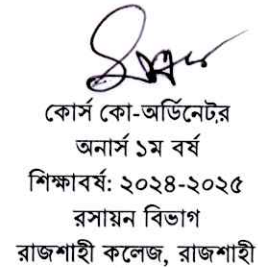 কোর্স কো-অর্ডিনেটর
অনার্স ১ম বর্ষ
শিক্ষাবর্ষ: ২০২৪-২০২৫
রসায়ন বিভাগ
রাজশাহী কলেজ, রাজশাহী